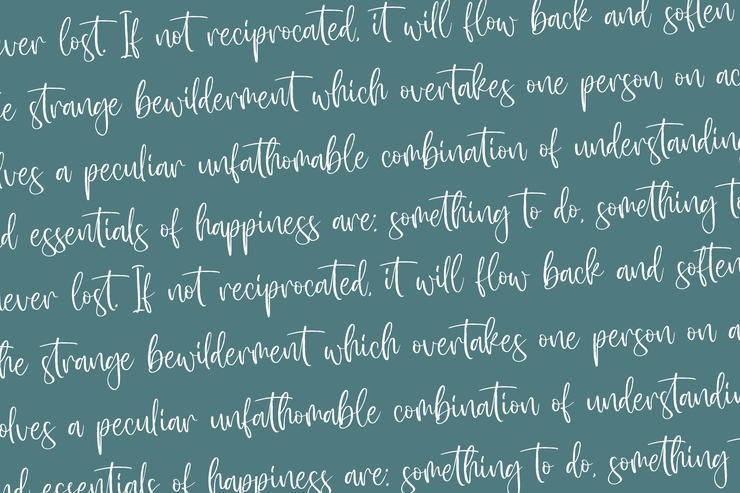 ver lost. If not reciprocated, it will flow back and soften
e strange bewilderment which overtakes one person on ac
lves a peculiar unfathomable combination of understanding
d essentials of happiness are: something to do, something to
ever lost. If not reciprocated, it will flow back and soften
he strange bewilderment which overtakes one person on a
olves a peculiar unfathomable combination of understandin
nd essentials of happiness are: something to do, something